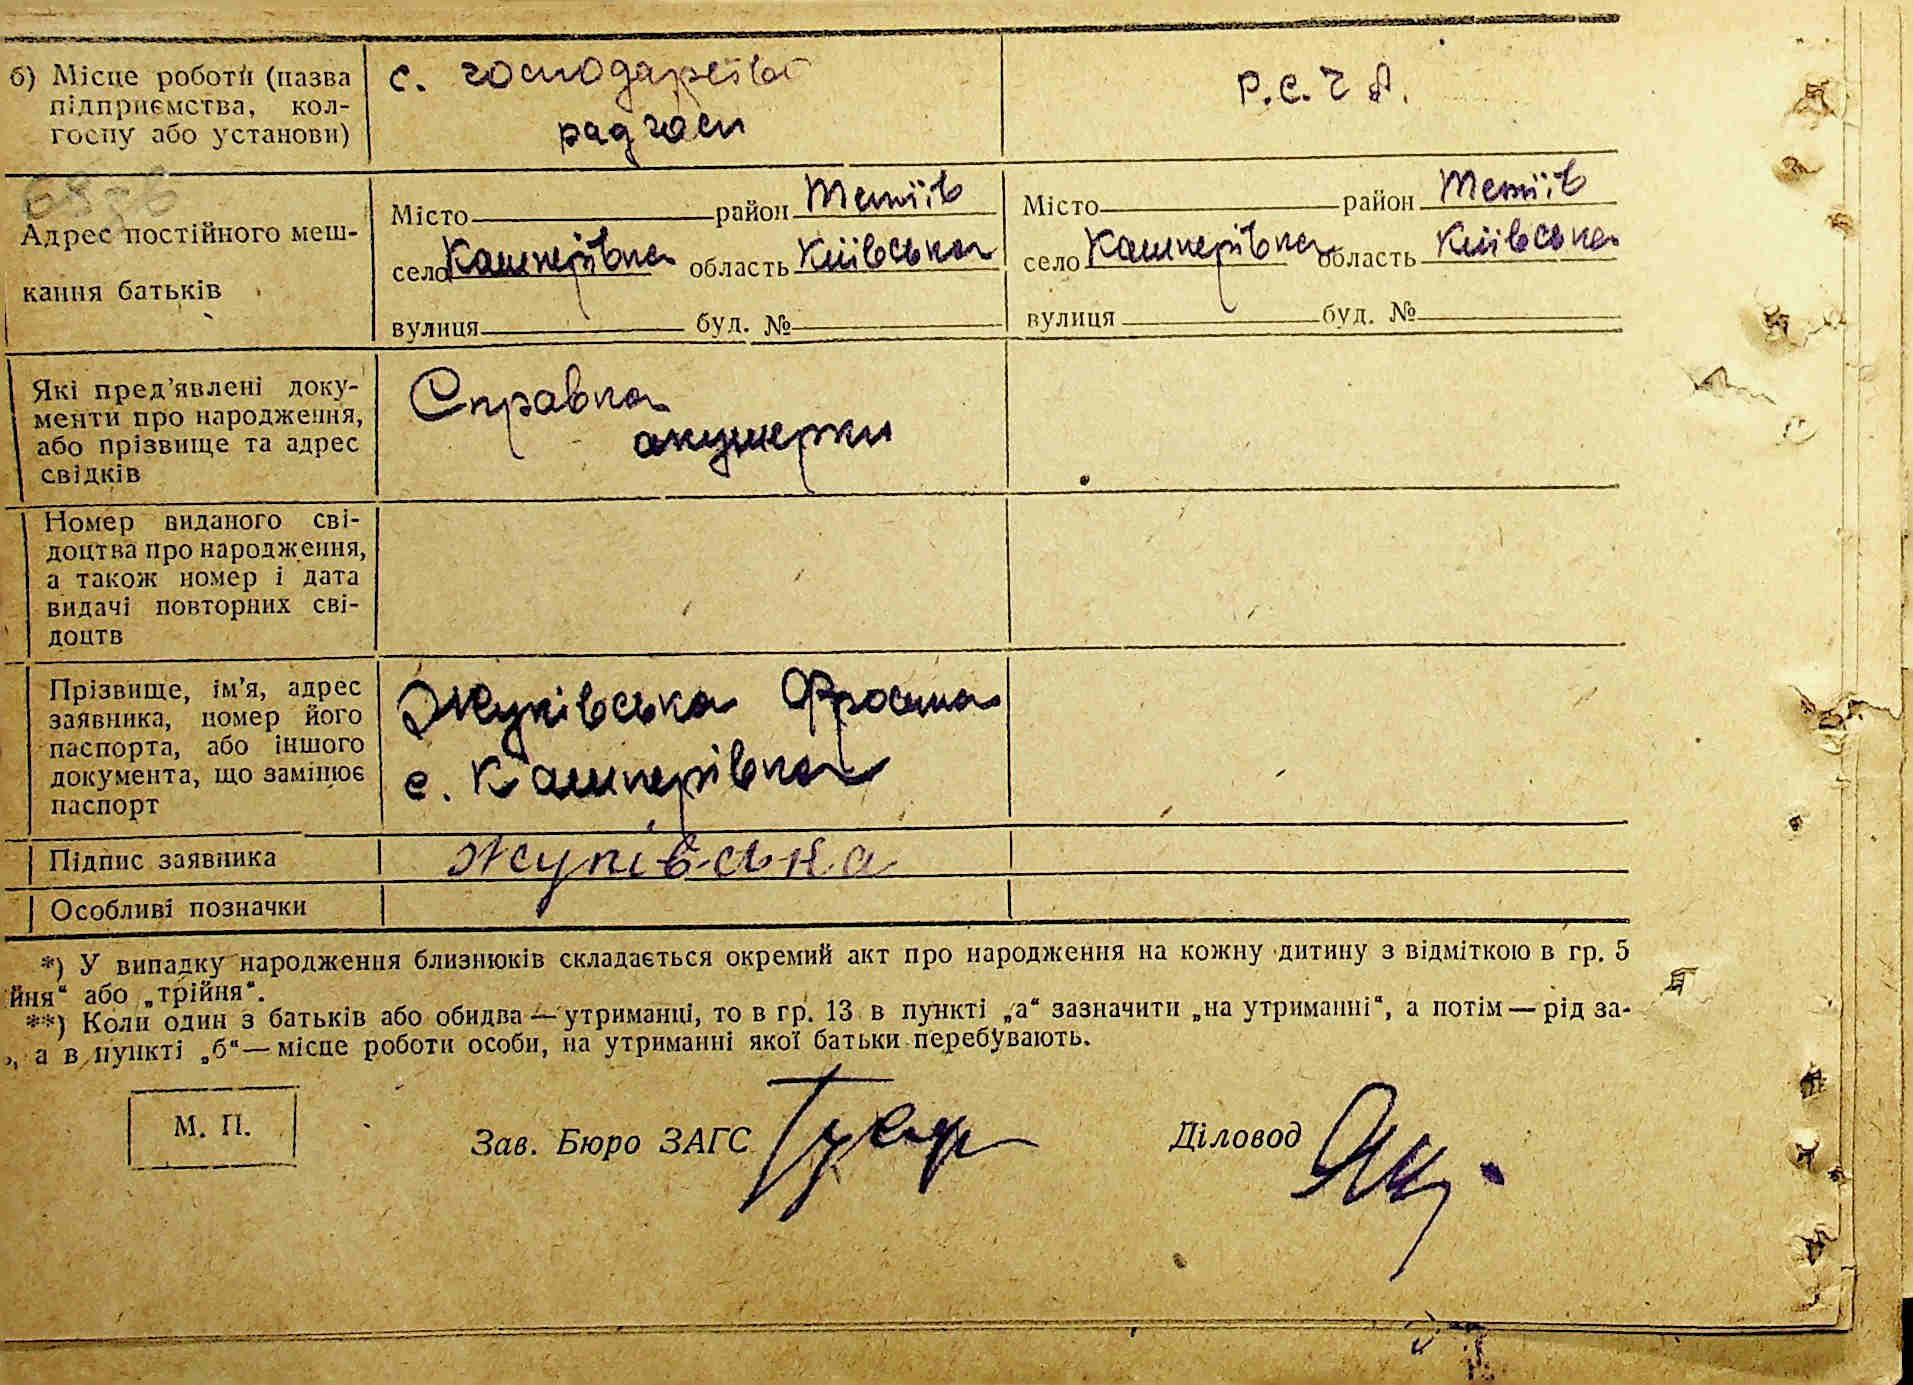 б) Місце роботи (назва
підприємства, кол-
госпу або установи)
с. господарство
радгосп
Р.С.Ч.А.
Адрес постійного меш-
кання батьків
Місто район Тетіїв
село Кашперівка область Київська
вулиця буд. №
Місто район Тетіїв
село Кашперівка область Київська
вулиця буд. №
Які пред'явлені доку-
менти про народження,
або прізвище та адрес
свідків
Справка
акушерки
Номер виданого сві-
доцтва про народження,
а також номер і дата
видачі повторних сві-
доцтв
Прізвище, ім'я, адрес
заявника, номер його
паспорта, або іншого
документа, що замінює
паспорт
Жупівська Фросина
с. Кашперівка
Підпис заявника
Жупівська
Особливі позначки
*) У випадку народження близнюків складається окремий акт про народження на кожну дитину з відміткою в гр. 5
йня“ або „трійня“.
**) Коли один з батьків або обидва — утриманці, то в гр. 13 в пункті „а“ зазначити „на утриманні“, а потім — рід за-
, а в пункті „б“ — місце роботи особи, на утриманні якої батьки перебувають.
М. П.
Зав. Бюро ЗАГС
Діловод